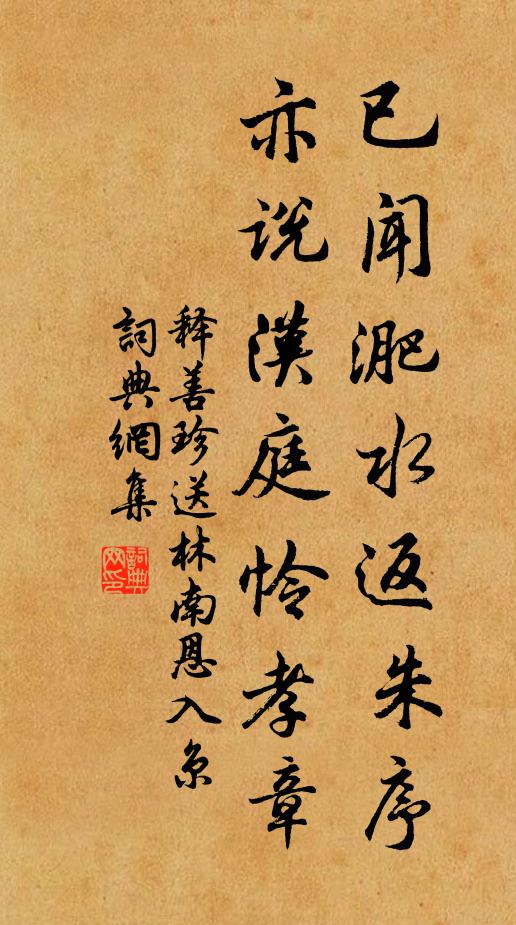 已闻淝水返朱序
亦说漢庭怜孝章
释善珍送林南恩入京
詞典網集
詞典網印